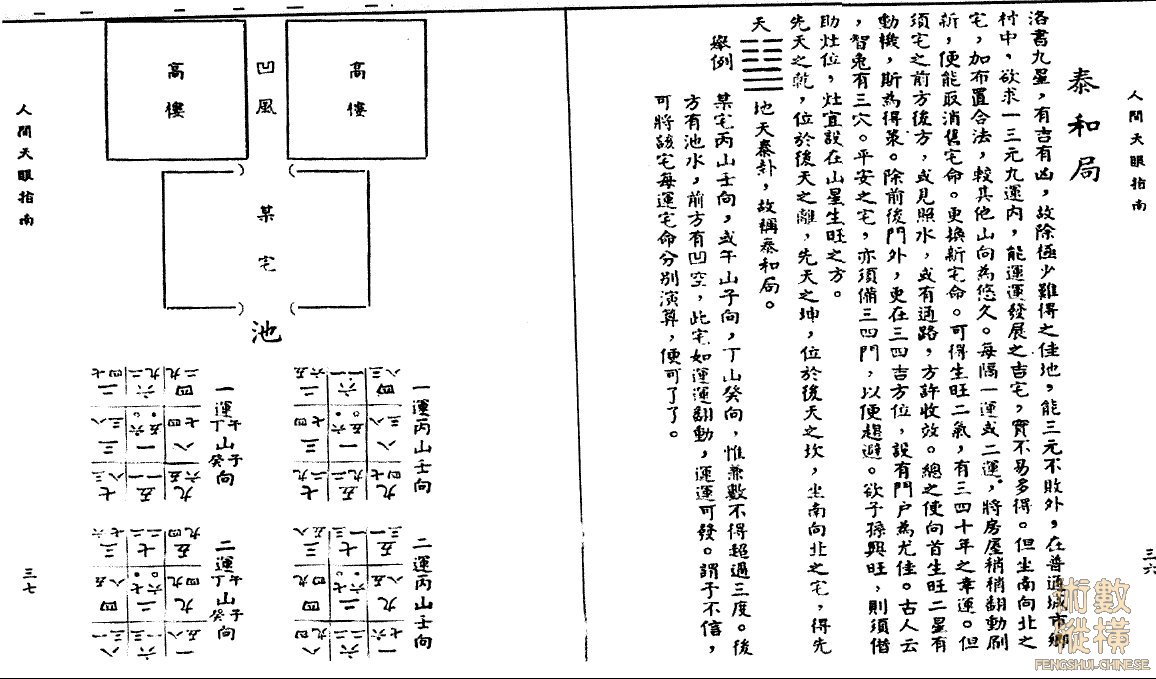 人間天眼指南
三六
泰和局
洛書九星，有吉有凶，故除極少難得之佳地，能三元不敗外，在普通城市鄉
村中，欲求一三元九運內，能運運發展之吉宅，實不易多得。但坐南向北之
宅，加布置合法，較其他山向為悠久。每隔一運或二運，將房屋稍稍翻動刷
新，便能取消舊宅命。更換新宅命。可得生旺二氣，有三四十年之幸運。但
須宅之前方後方，或見照水，或有通路，方許收效。總之使向首生旺二星有
動機，斯為得策。除前後門外，更在三四吉方位，設有門戶為尤佳。古人云
，智兔有三穴。平安之宅，亦須備三四門，以便趨避。欲子孫興旺，則須借
助灶位，灶宜設在山星生旺之方。
先天之乾，位於後天之離，先天之坤，位於後天之坎，坐南向北之宅，得先
天 地天泰卦，故稱泰和局。
舉例 某宅丙山壬向，或午山子向，丁山癸向，惟兼數不得超過三度。後
方有池水，前方有凹空，此宅如運運翻動，運運可發。謂予不信，
可將該宅每運宅命分別演算，便可了了。
高樓
凹風
高樓
某宅
池
一運丙山壬向
一運丁午山癸子向
二運丙山壬向
二運丁午山癸子向
人間天眼指南
三七
術數縱橫
FENGSHUI-CHINESE